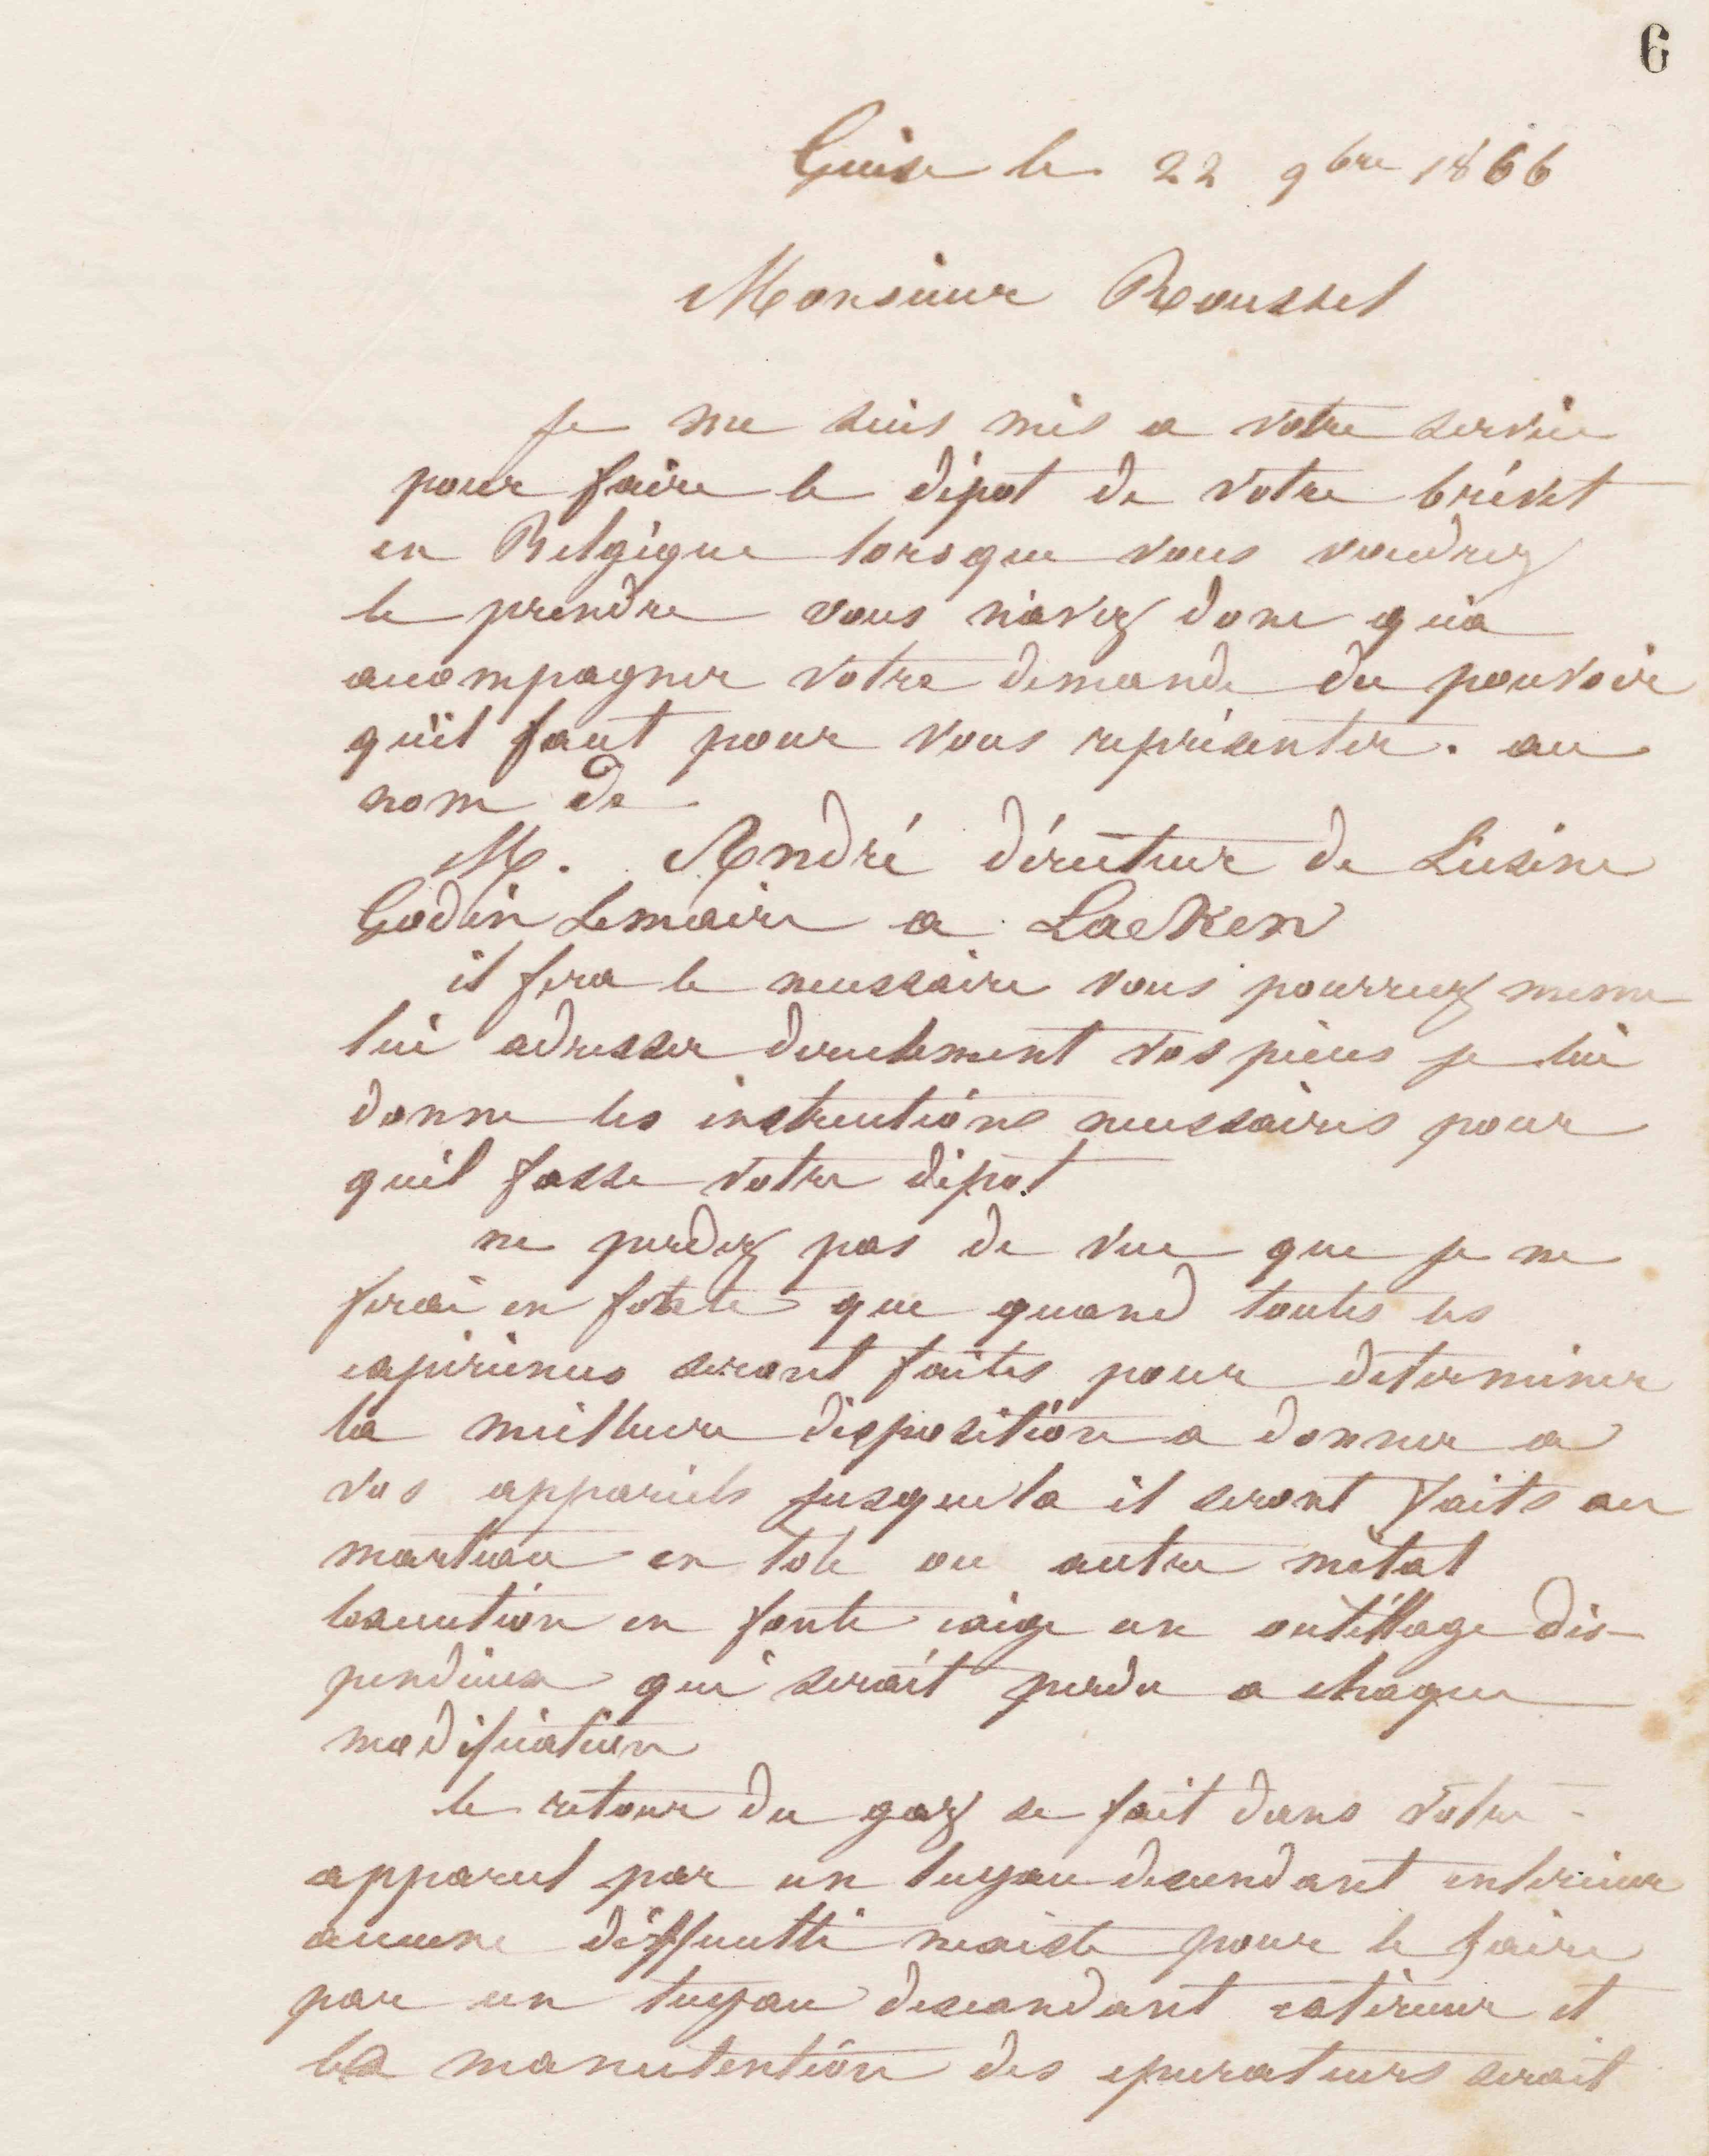 6
Guise le 22 9bre 1866
Monsieur Roussel
Je me suis mis a votre service
pour faire le dépot de votre brévet
en Belgique lorsque vous voudrez
le prendre vous n'avez donc qu'a
accompagner votre demande du pouvoir
qu'il faut pour vous représenter. au
nom de
M. André dérecteur de Lusine
Godin Lemaire a Laeken
il fera le necessaire vous pourrez meme
lui adresser directement vos pièces je lui
donne les instructions necessaires pour
quil fasse votre dépot
ne perdez pas de vue que je ne
ferai en fonte que quand toutes les
expériences seront faites pour determiner
la meilleure disposition a donner a
vos appareils jusque la il seront faits au
marteau en tole ou autre métal
lexecution en fonte exige un outillage dis-
pendieux qui serait perdu a chaque
modification
le retour du gaz se fait dans votre
appareil par un tuyau descendant interieur
aucune difficulté nexiste pour le faire
par un tuyau descendant extérieur et
la manutention des epurateurs serait